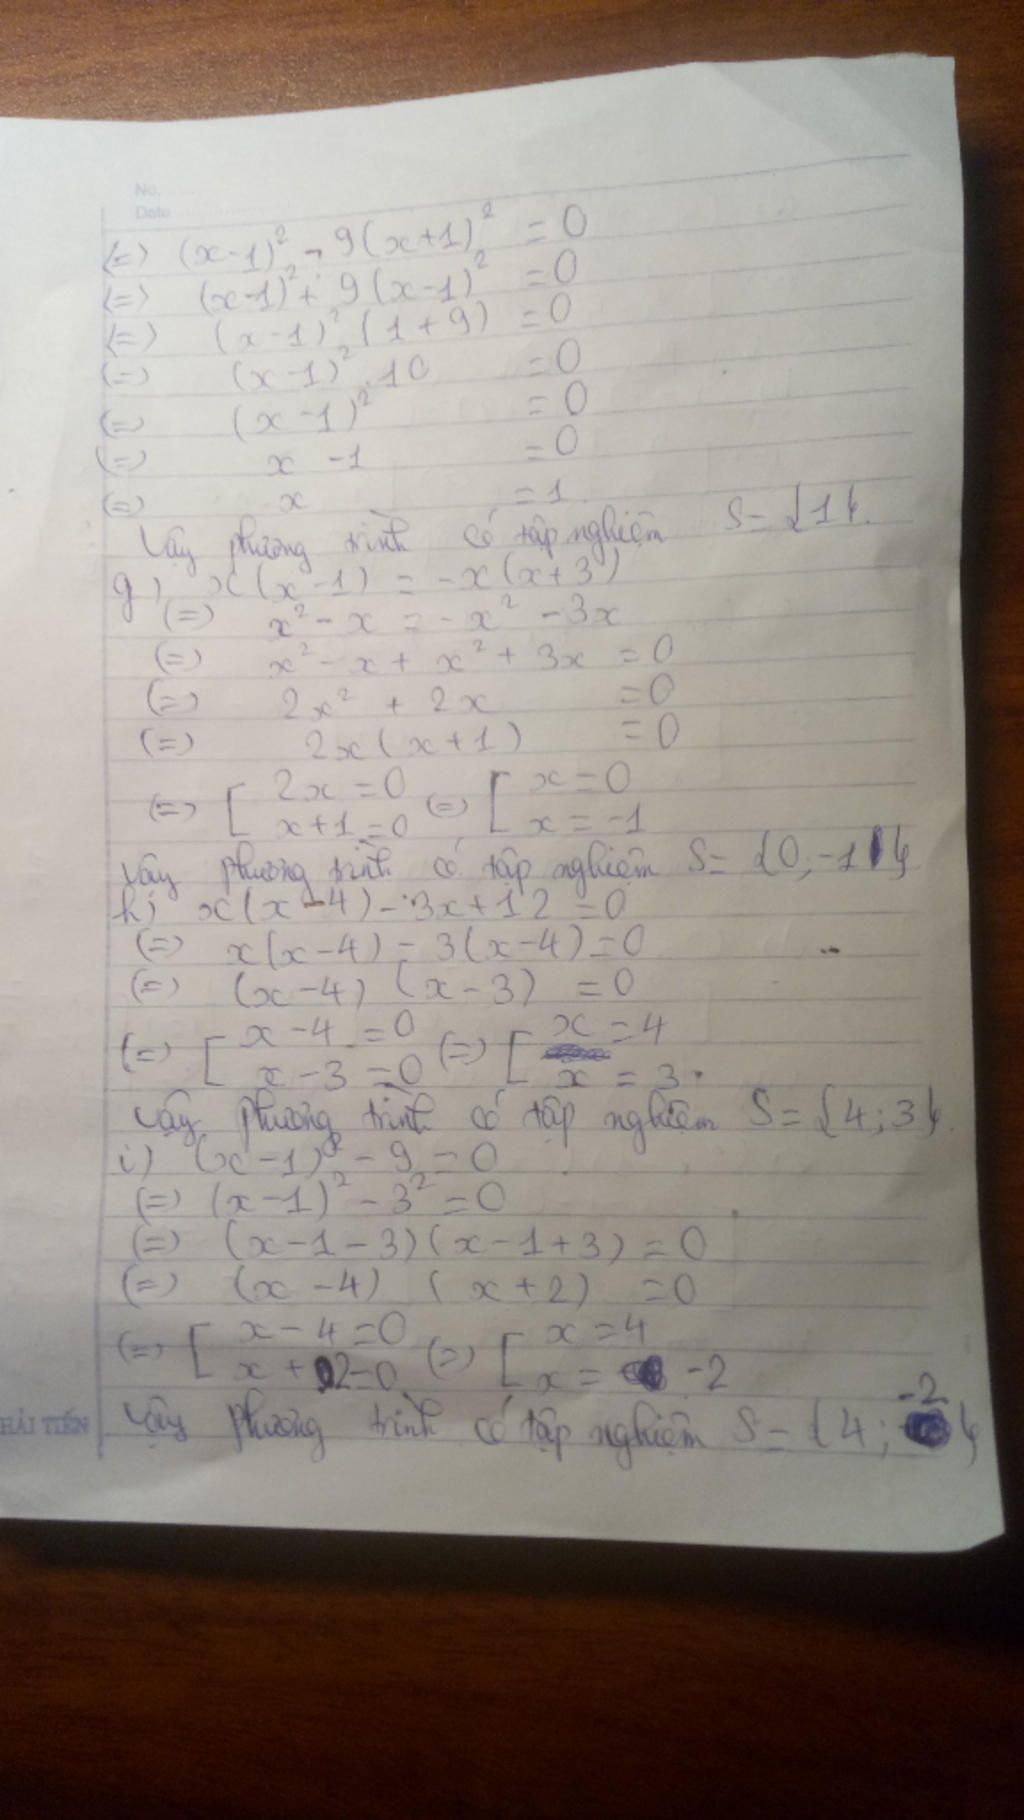 No.
Date
(=) (x-1)² - 9(x+1)² = 0
(=) (x-1)² + 9(x-1)² = 0
(=) (x-1)² (1+9) = 0
(=) (x-1)² .10 = 0
(=) (x-1)² = 0
(=) x -1 = 0
(=) x = 1
Vậy phương trình có tập nghiệm S= {1}.
g) x(x-1) = -x(x+3)
(=) x² - x = -x² - 3x
(=) x² - x + x² + 3x = 0
(=) 2x² + 2x = 0
(=) 2x(x+1) = 0
(=) [ 2x = 0 (=) [ x = 0
x+1 = 0 x = -1
Vậy phương trình có tập nghiệm S= {0;-1}
h) x(x-4) - 3x+12 = 0
(=) x(x-4) - 3(x-4) = 0
(=) (x-4) (x-3) = 0
(=) [ x-4 = 0 (=) [ x = 4
x-3 = 0 x = 3.
Vậy phương trình có tập nghiệm S= {4;3}.
i) (x-1)² - 9 = 0
(=) (x-1)² - 3² = 0
(=) (x-1-3)(x-1+3) = 0
(=) (x-4) (x+2) = 0
(=) [ x-4=0 (=) [ x = 4
x+2=0 x = -2
HẢI TIẾN Vậy phương trình có tập nghiệm S= {4; -2}